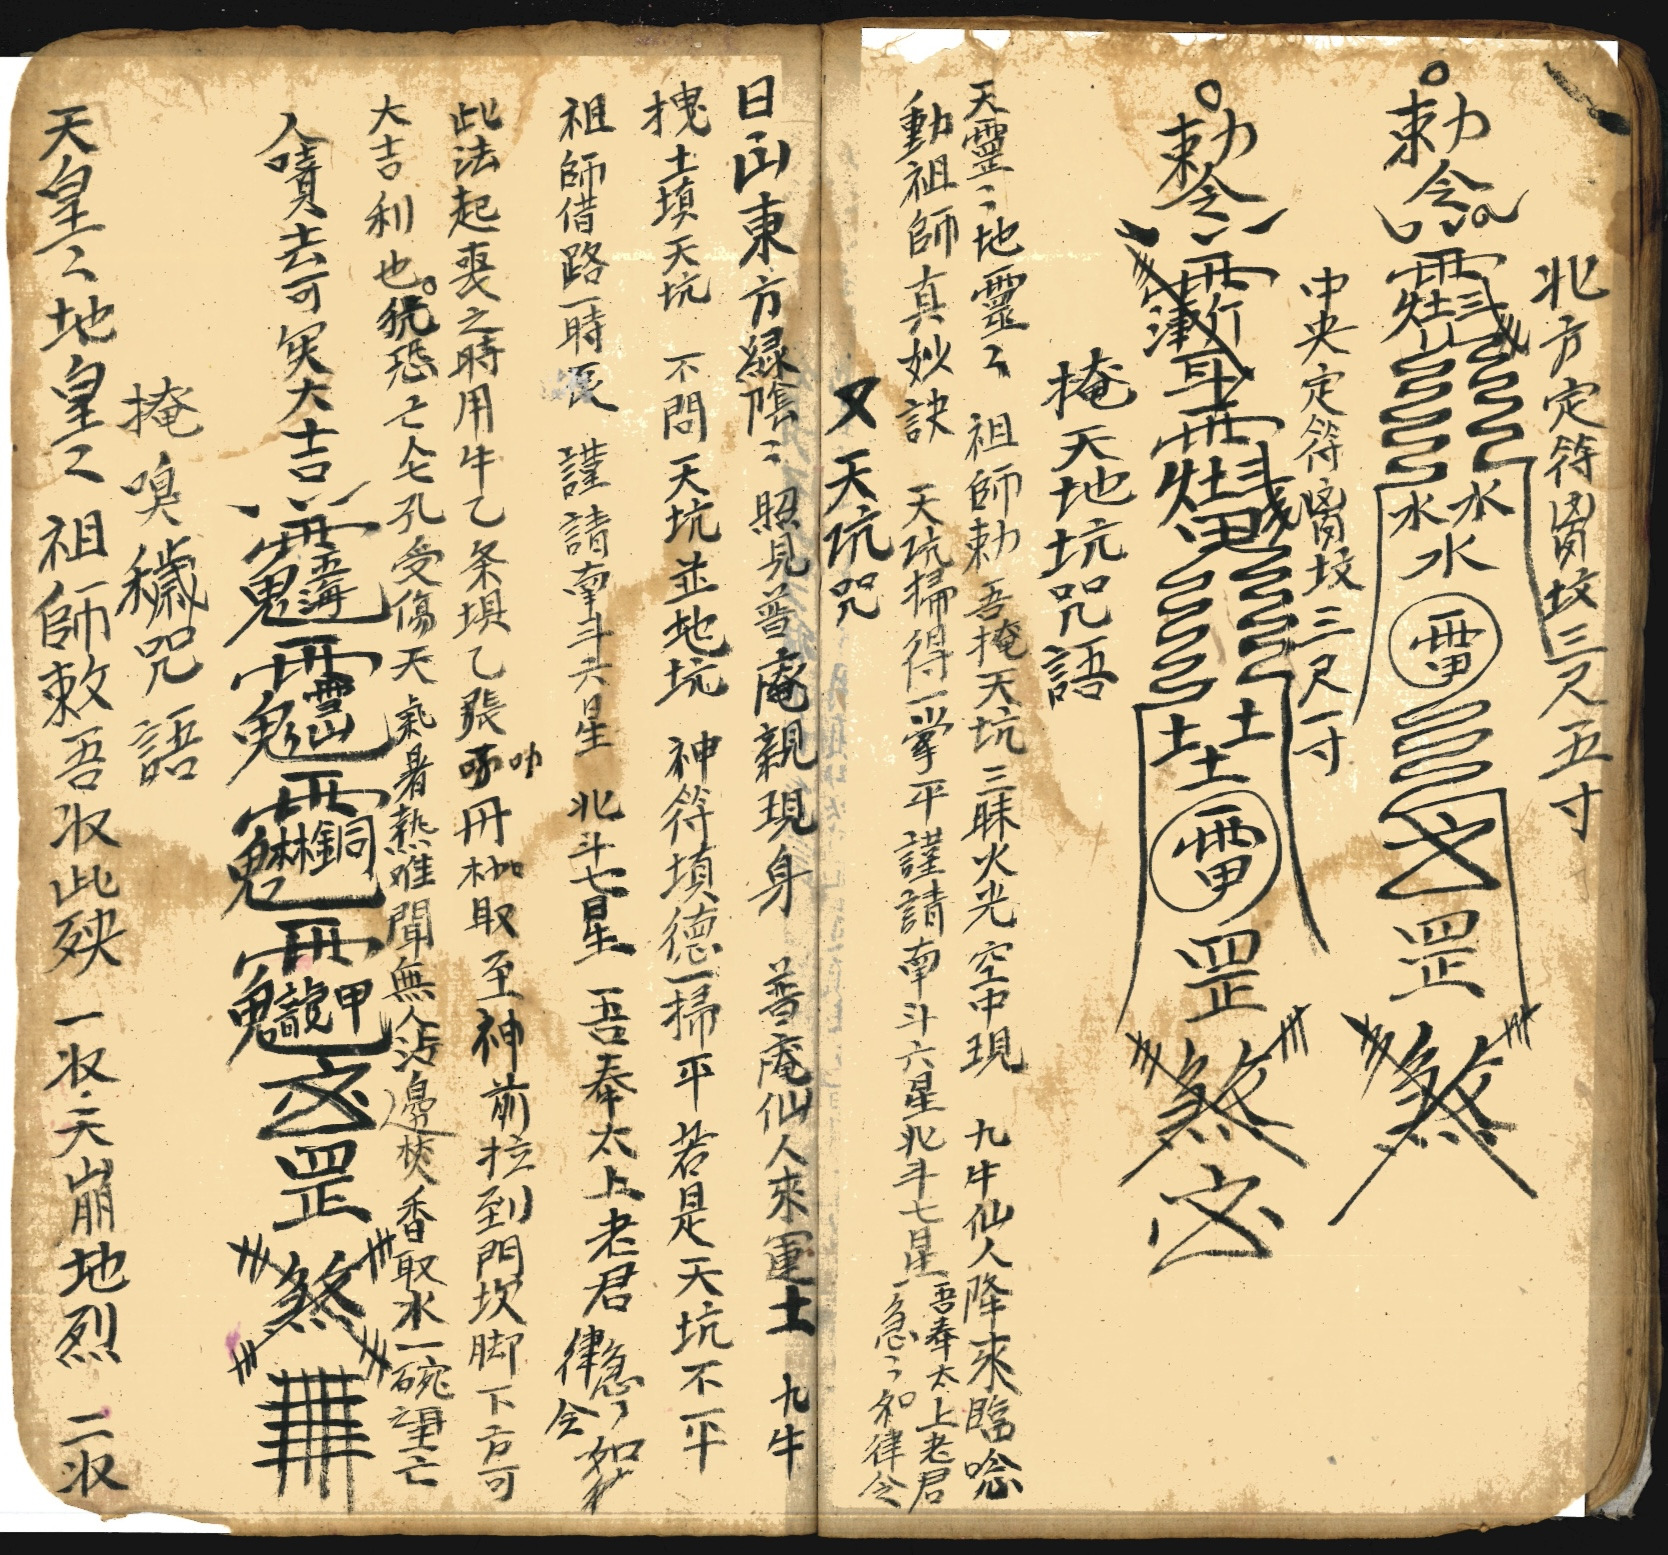 北方定符离坟三尺五寸
勅令
水水水
雷
罡
煞
中央定符离坟三尺一寸
勅令
土土土
雷
罡
煞
掩天地坑咒語
天靈〻地靈〻 祖師勅吾掩天坑三昧火光空中現 九牛仙人降來臨唸
動祖師真妙訣 天坑掃得一掌平謹請南斗六星北斗七星吾奉太上老君急〻如律令
又天坑咒
日出東方綠陰〻照見普庵親現身 普庵仙人來運土 九牛
拽土填天坑 不問天坑並地坑 神符填德一掃平 若是天坑不平
祖師借路一時辰 謹請南斗六星 北斗七星 吾奉太上老君急〻如律令
此法起喪之時用牛乙条埧乙張 冊 取至神前拉到門坎脚下方可
大吉利也。犹恐亡 孔受傷天氣暑熱难聞無人沾邊焚香取水一碗望亡
人噴去可矣大吉
罡
煞
掩嗅穢咒語
天皇〻地皇〻祖師敕吾收此殃 一收天崩地烈 二收